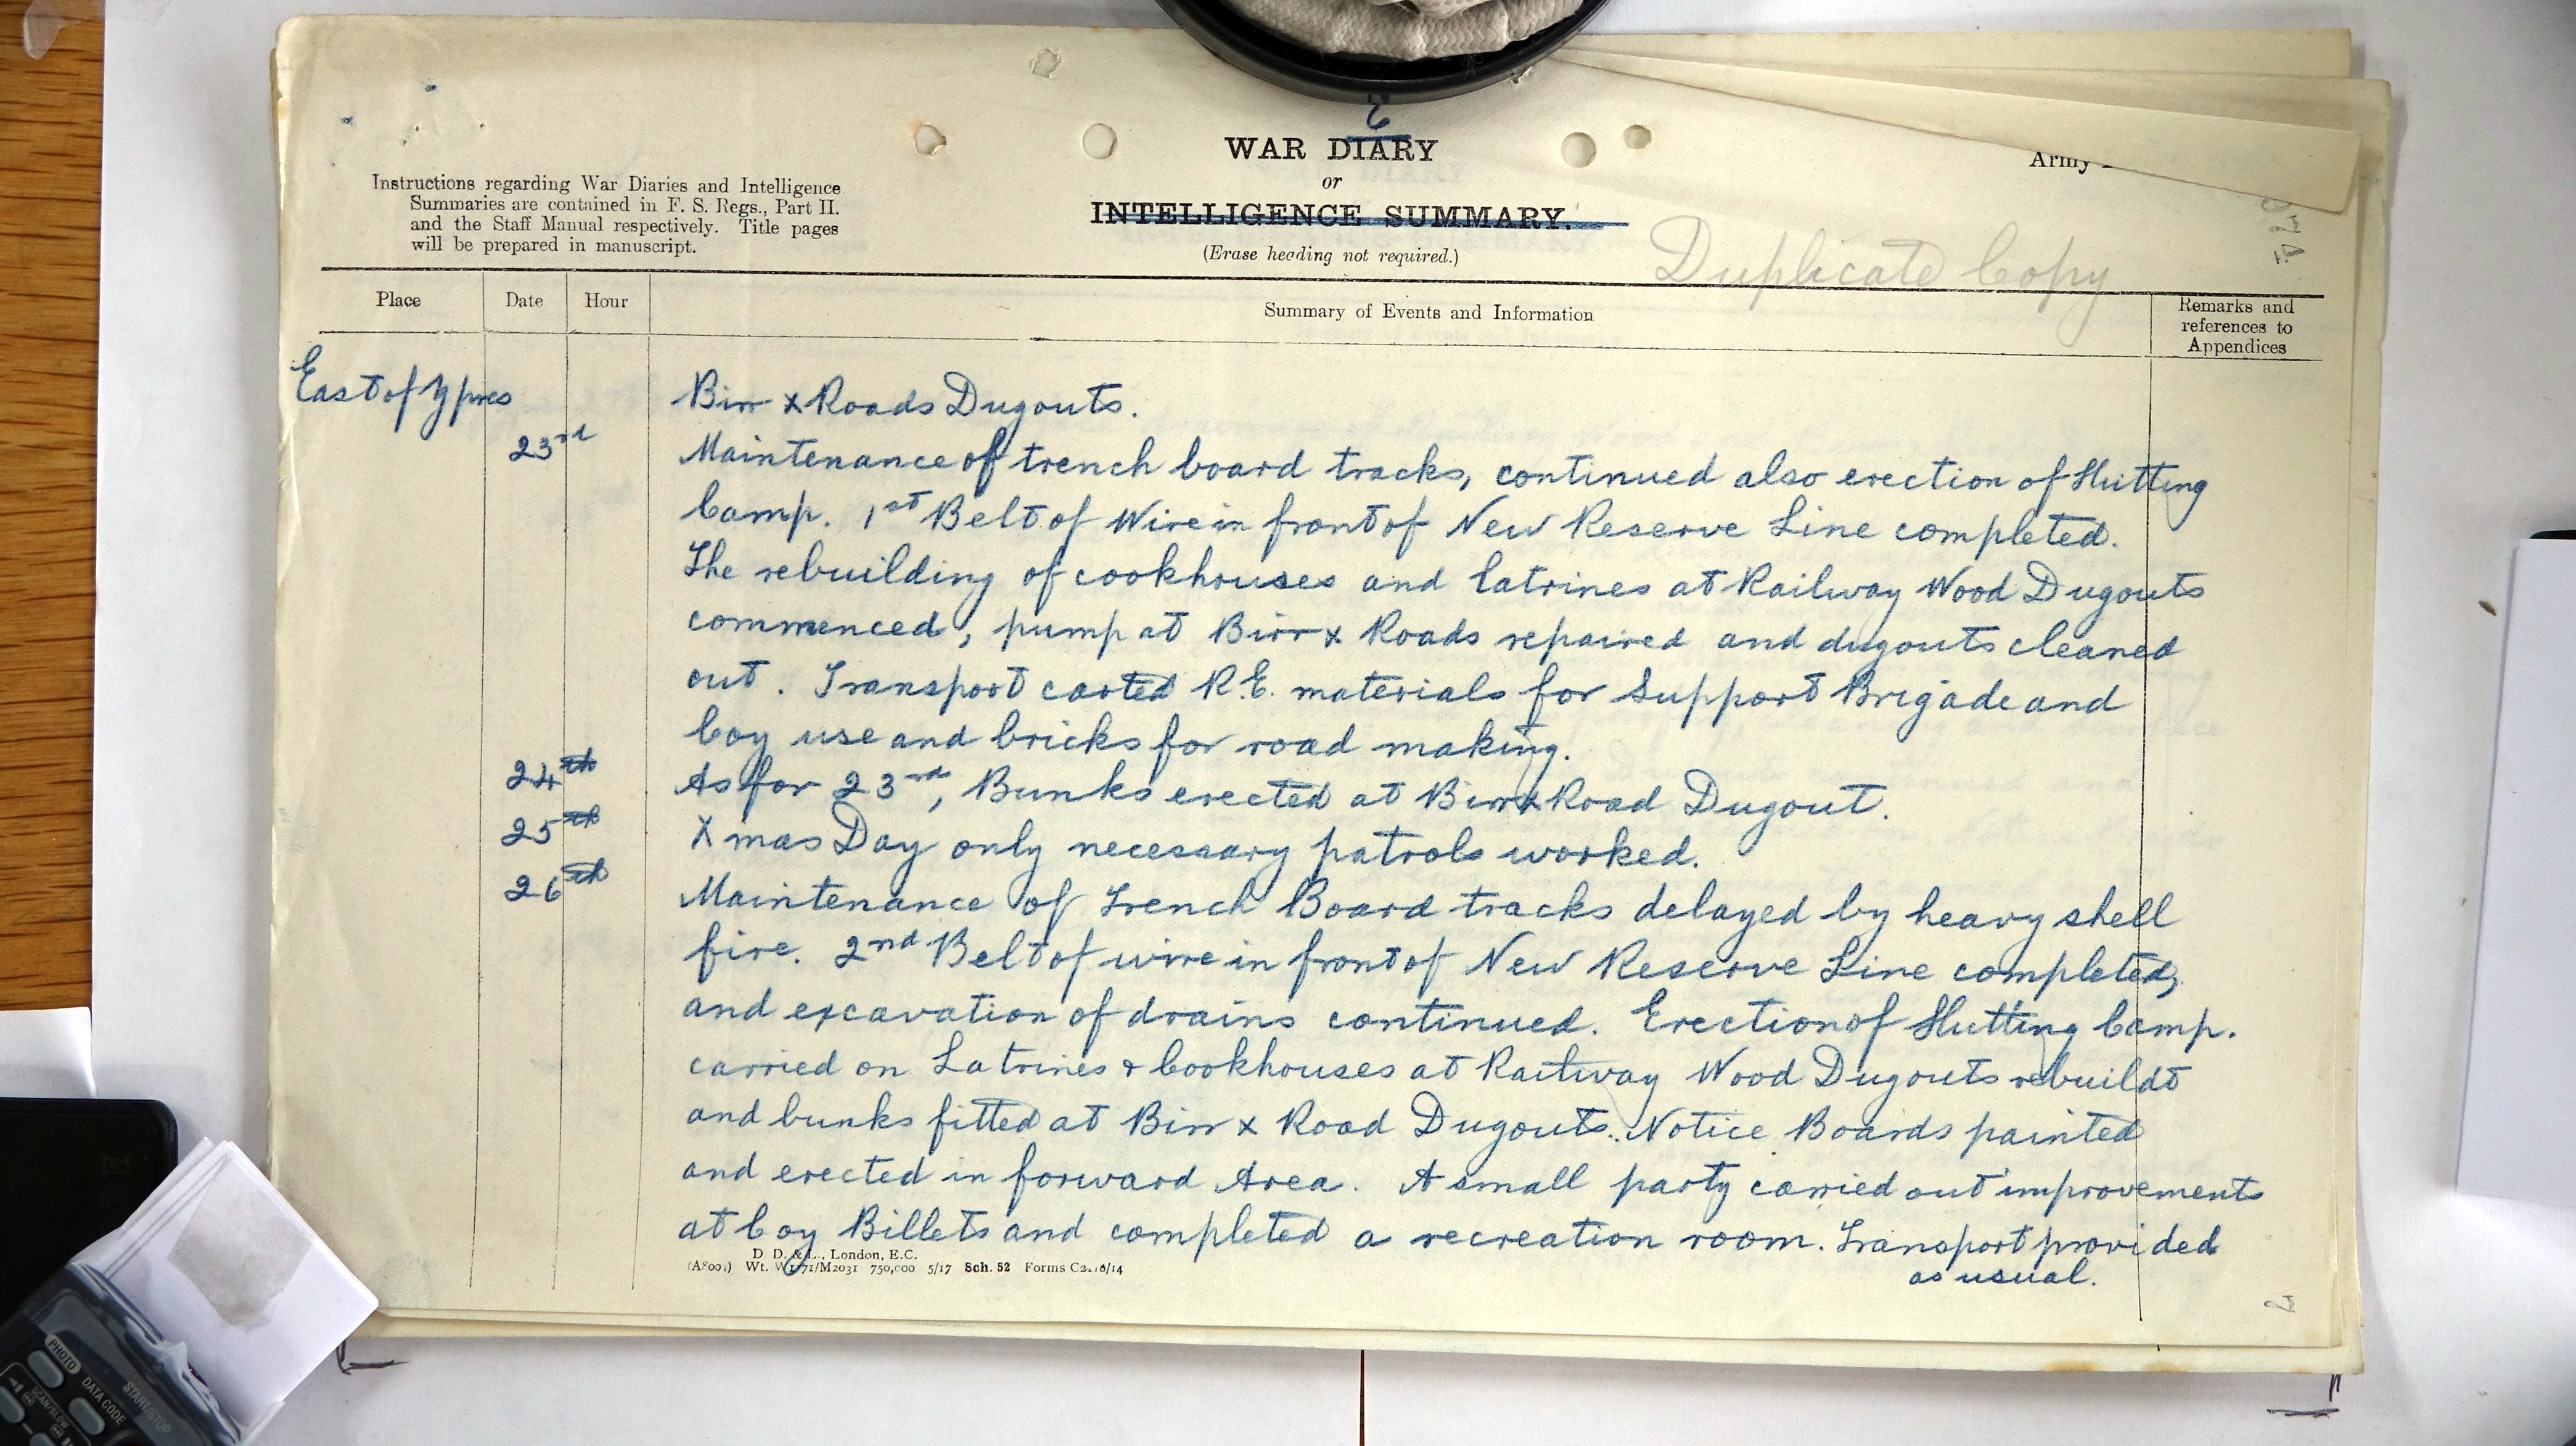 6
WAR DIARY
or
INTELLIGENCE SUMMARY.
(Erase heading not required.)
Army
Instructions regarding War Diaries and Intelligence
Summaries are contained in F. S. Regs., Part II.
and the Staff Manual respectively. Title pages
will be prepared in manuscript.
Duplicate Copy
Place Date Hour Summary of Events and Information Remarks and references to Appendices
East of Ypres Birr x Roads Dugouts.
23rd Maintenance of trench board tracks, continued also erection of Hutting
Camp. 1st Belt of Wire in front of New Reserve Line completed.
The rebuilding of cookhouses and latrines at Railway Wood Dugouts
commenced, pump at Birr x Roads repaired and dugouts cleaned
out. Transport carted R.E. materials for Support Brigade and
Coy use and bricks for road making.
24th As for 23rd, Bunks erected at Birr x Road Dugout.
25th Xmas Day only necessary patrols worked.
26th Maintenance of Trench Board tracks delayed by heavy shell
fire. 2nd Belt of wire in front of New Reserve Line completed,
and excavation of drains continued. Erection of Hutting Camp.
carried on Latrines & Cookhouses at Railway Wood Dugouts rebuildt
and bunks fitted at Birr x Road Dugouts. Notice Boards painted
and erected in forward Area. A small party carried out improvements
at Coy Billets and completed a recreation room. Transport provided
as usual.
D. D. & L., London, E.C.
Wt. 750,000 5/17 Sch. 52 Forms
PHOTO
DATA CODE
START/STOP
SCAN/SLOW